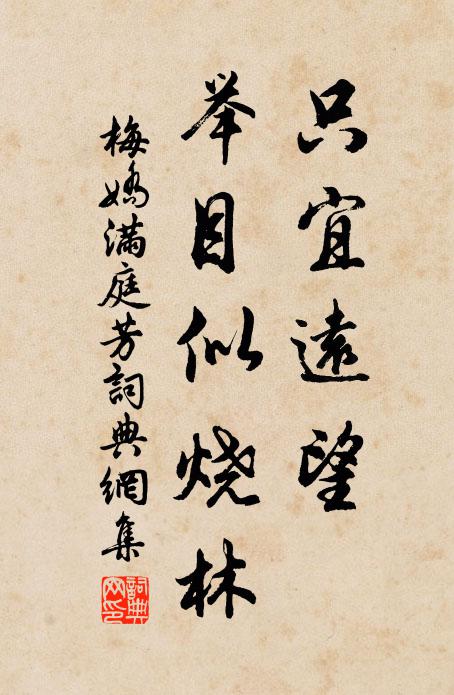 只宜遠望
举目似烧林
梅嬌满庭芳詞典網集
詞典网印